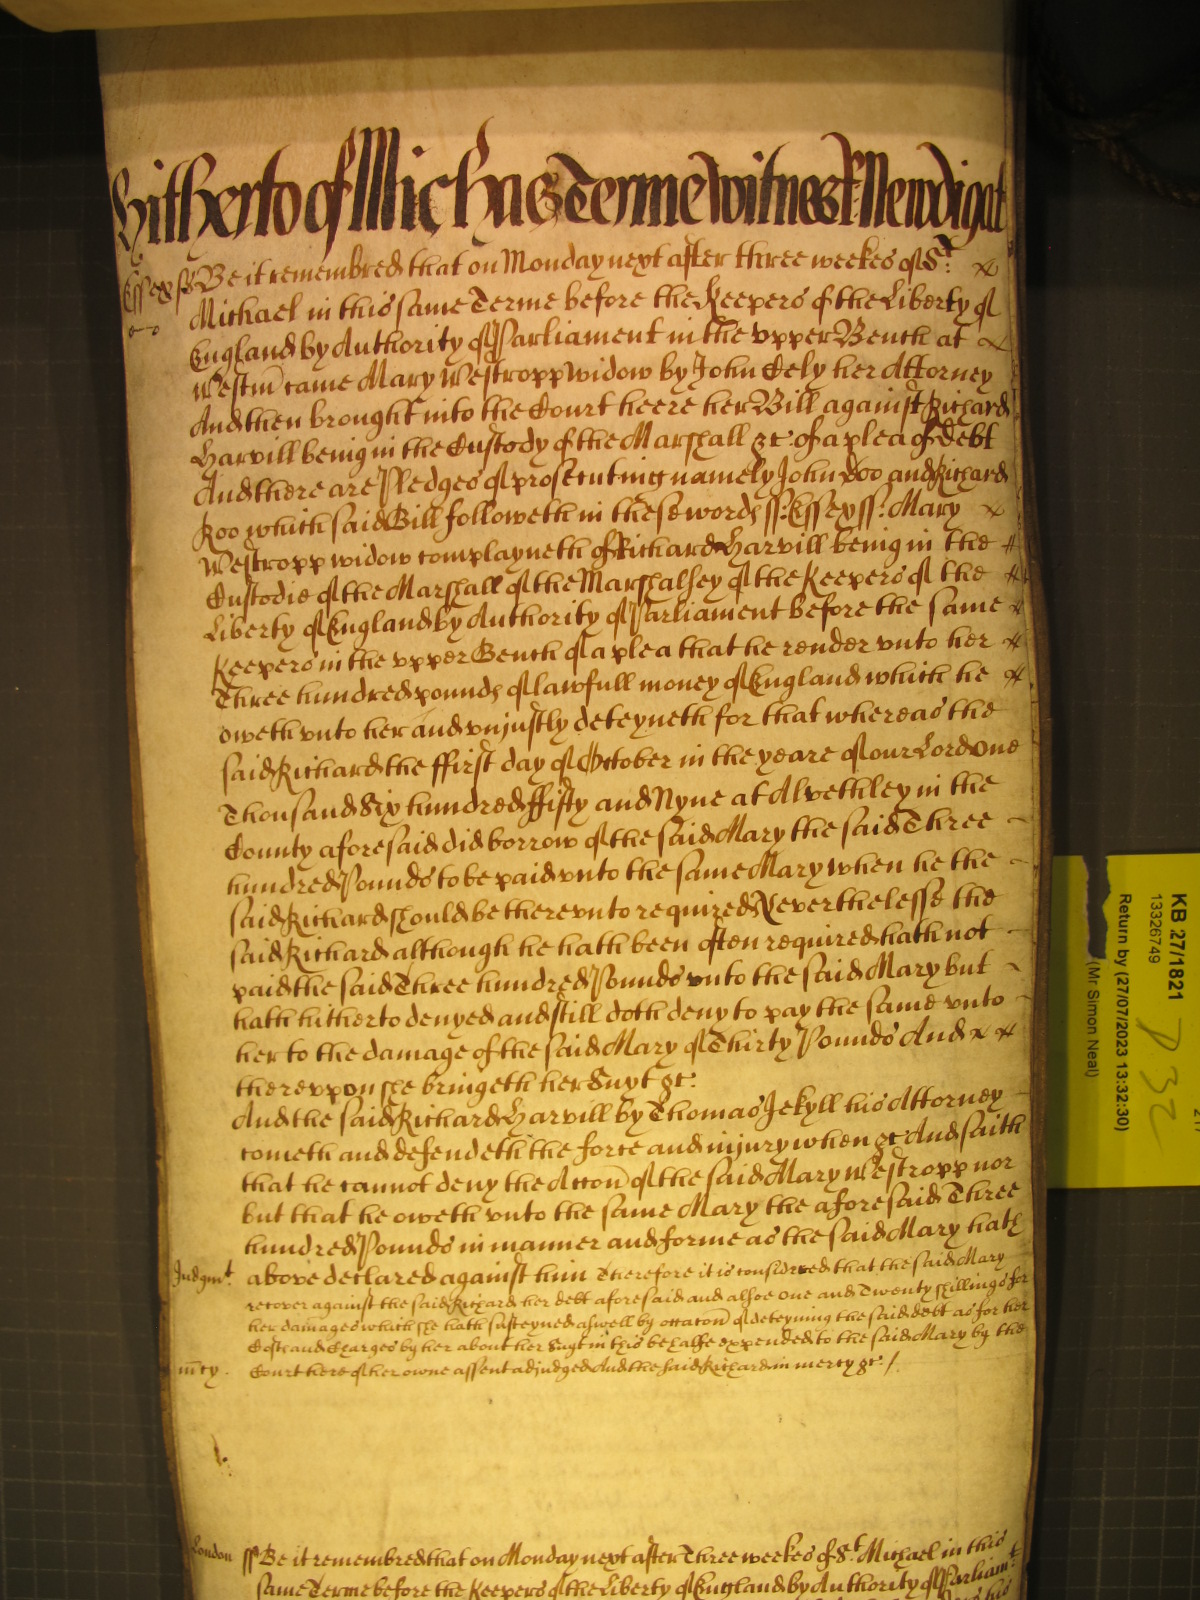 Hitherto of Michas Terme witness R: Newdigat
Essex ss Be it remembred that on Monday next after three weekes of St:
Michael in this same Terme before the Keepers of the Liberty of
England by Authority of Parliament in the vpper Bench at
Westm̄ came Mary Westropp widow by John Cely her Attorney
And then brought into the Court heere her Bill against Richard
Harvill being in the Custody of the Marshall &c: of a plea of debt
And there are Pledges of prosecuting namely John Doo and Richard
Roo which said Bill followeth in these words ss: Essex ss: Mary
Westropp widow complayneth of Richard Harvill being in the
Custodie of the Marshall of the Marshalsey of the Keepers of the
Liberty of England by Authority of Parliament before the same
Keepers in the vpper Bench of a plea that he render vnto her
Three hundred pounds of lawfull money of England which he
oweth vnto her and vnjustly deteyneth for that whereas the
said Richard the ffirst day of October in the yeare of our Lord One
Thousand Six hundred ffifty and Nyne at Alvethley in the
County aforesaid did borrow of the said Mary the said Three
hundred Pounds to be paid vnto the same Mary when he the
said Richard should be therevnto required Neverthelesse the
said Richard although he hath been often required hath not
paid the said Three hundred Pounds vnto the said Mary but
hath hitherto denyed and still doth deny to pay the same vnto
her to the damage of the said Mary of Thirty Pounds And
therevpon she bringeth her Suyt &c:
And the said Richard Harvill by Thomas Jekyll his Attorney
cometh and defendeth the force and injury when &c And saith
that he cannot deny the Accon̄ of the said Mary Westropp nor
but that he oweth vnto the same Mary the aforesaid Three
hundred Pounds in manner and forme as the said Mary hath
Judgmt: above declared against him Therefore it is considered that the said Mary
recover against the said Richard her debt aforesaid and alsoe One and Twenty shillings for
her damages which she hath susteyned aswell by occacon̄ of deteyning the said debt as for her
Costs and Charges by her about her Suyt in this behalfe expended to the said Mary by the
m̄cy. Court here of her owne assent adjudged And the said Richard in mercy &c: /
London ss Be it remembred that on Monday next after Three weekes of St: Michael in this
same Terme before the Keepers of the Liberty of England by Authority of Parliamt:
KB 27/1821
13326749
D 32
Return by (27/07/2023 13:32:30)
(Mr Simon Neal)